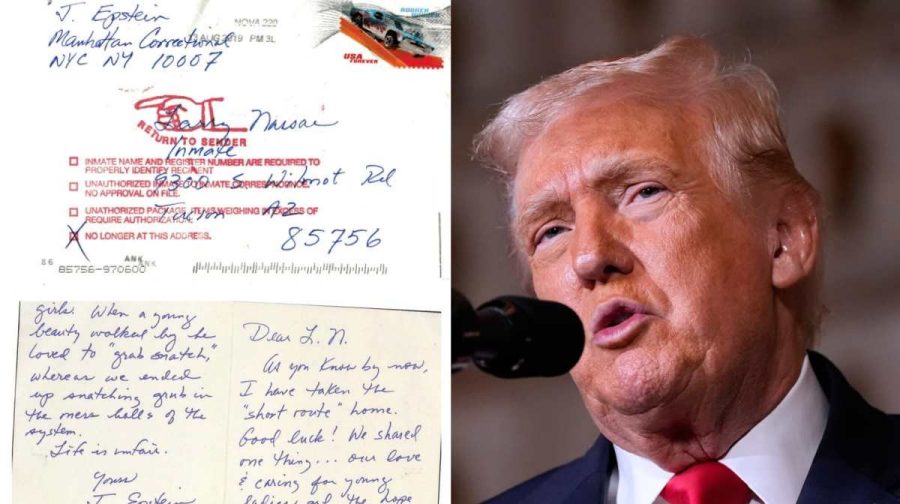 J. Epstein
Manhattan Correctional
NYC NY 10007
NOVA 220
13 AUG 2019 PM 3 L
USA
FOREVER
RETURN TO SENDER
Larry Nassar
Inmate
9300 S. Wilmot Rd
Tucson AZ
85756
INMATE NAME AND REGISTER NUMBER ARE REQUIRED TO
PROPERLY IDENTIFY RECIPIENT
UNAUTHORIZED INMATE TO INMATE CORRESPONDENCE.
NO APPROVAL ON FILE.
UNAUTHORIZED PACKAGE. ITEMS WEIGHING IN EXCESS OF
REQUIRE AUTHORIZATION.
X NO LONGER AT THIS ADDRESS.
86
ANK
ANK
85756-970600
girls. When a young
beauty walked by he
loved to "grab snatch,"
whereas we ended
up snatching grub in
the mess halls of the
system.
Life is unfair.
Yours
J. Epstein
Dear L.N.
As you know by now,
I have taken the
"short route" home.
Good luck! We shared
one thing... our love
& caring for young
ladies and the hope